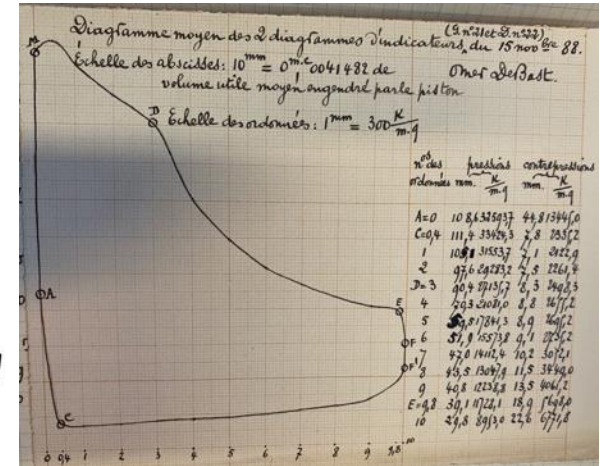 Diagramme moyen des 2 diagrammes d'indicateurs, du 15 novbre 88.
(G. n° 21 et D. n° 22)
Échelle des abscisses: 10mm = 0m.c 0041482 de
volume utile moyen engendré par le piston
Omer DeBast.
Échelle des ordonnées: 1mm = 300 K/m.q
M
D
A
C
E
F
F'
nos des ordonnées pressions contrepressions
mm. K/m.q mm. K/m.q
A=0 108,6 32593,7 44,8 13445,0
C=0,4 111,4 33424,3 7,8 2335,2
1 31553,7 7,1 2122,9
2 97,6 29283,2 7,5 2261,4
D=3 90,4 27135,7 8,3 2498,3
4 21081,0 8,8
5 17841,3 8,9
6 51,9 15573,8 9,1
7 47,0 14112,4 10,2 3072,1
8 43,5 13047,9 11,5 3449,0
9 40,8 12238,8 13,5 4061,2
E=9,8 39,1 11722,1 18,9 5698,0
10 29,8 8953,0 22,6 6771,8
0 0,4 1 2 3 4 5 6 7 8 9 9,8 10